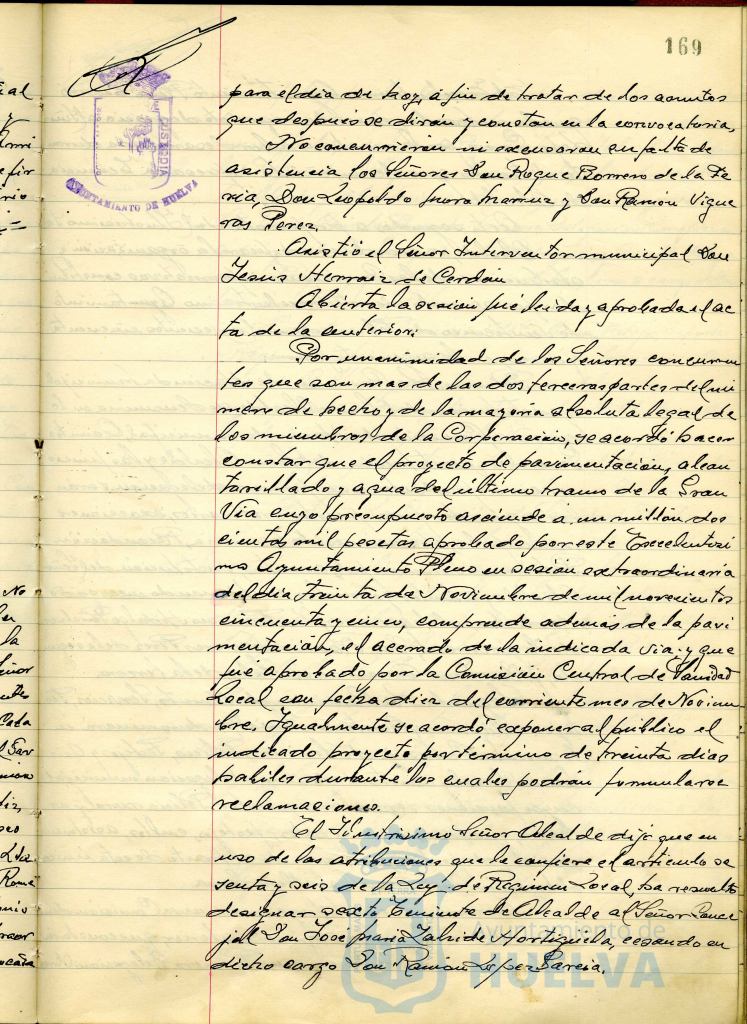 169
CUSTODIA
AYUNTAMIENTO DE HUELVA
para el dia de hoy, á fin de tratar de los asuntos
que despues se dirán y constan en la convocatoria,
No concurrieron ni excusaron su falta de
asistencia los Señores Don Roque Borrero de la Fe
ria, Don Leopoldo y Don Ramón Vigue
ras Perez.
Asistió el Señor Interventor municipal Don
Jesús Herraiz de Cerdán
Abierta la sesión fué leida y aprobada el ac
ta de la anterior:
Por unanimidad de los Señores concurren
tes que son mas de las dos terceras partes del nú
mero de hecho y de la mayoria absoluta legal de
los miembros de la Corporación, se acordó hacer
constar que el proyecto de pavimentación, alcan
tarillado y agua del último tramo de la Gran
Via cuyo presupuesto asciende á un millón dos
cientas mil pesetas aprobado por este Excelentisi
mo Ayuntamiento Pleno en sesión extraordinaria
del dia treinta de Noviembre de mil novecientos
cincuenta y cinco, comprende además de la pavi
mentación, el acerado de la indicada via y que
fué aprobado por la Comisión Central de Sanidad
Local con fecha diez del corriente mes de Noviem
bre. Igualmente se acordó exponer al público el
indicado proyecto por término de treinta dias
habiles durante los cuales podrán formularse
reclamaciones.
El Ilustrisimo Señor Alcalde dijo que en
uso de las atribuciones que le confiere el articulo se
senta y seis de la Ley de Régimen Local, ha resuelto
designar sexto Teniente de Alcalde al Señor Conce
jal Don José Maria de Hortigüela, cesando en
dicho cargo Don Ramón Lopez Garcia.
Ayuntamiento de
HUELVA